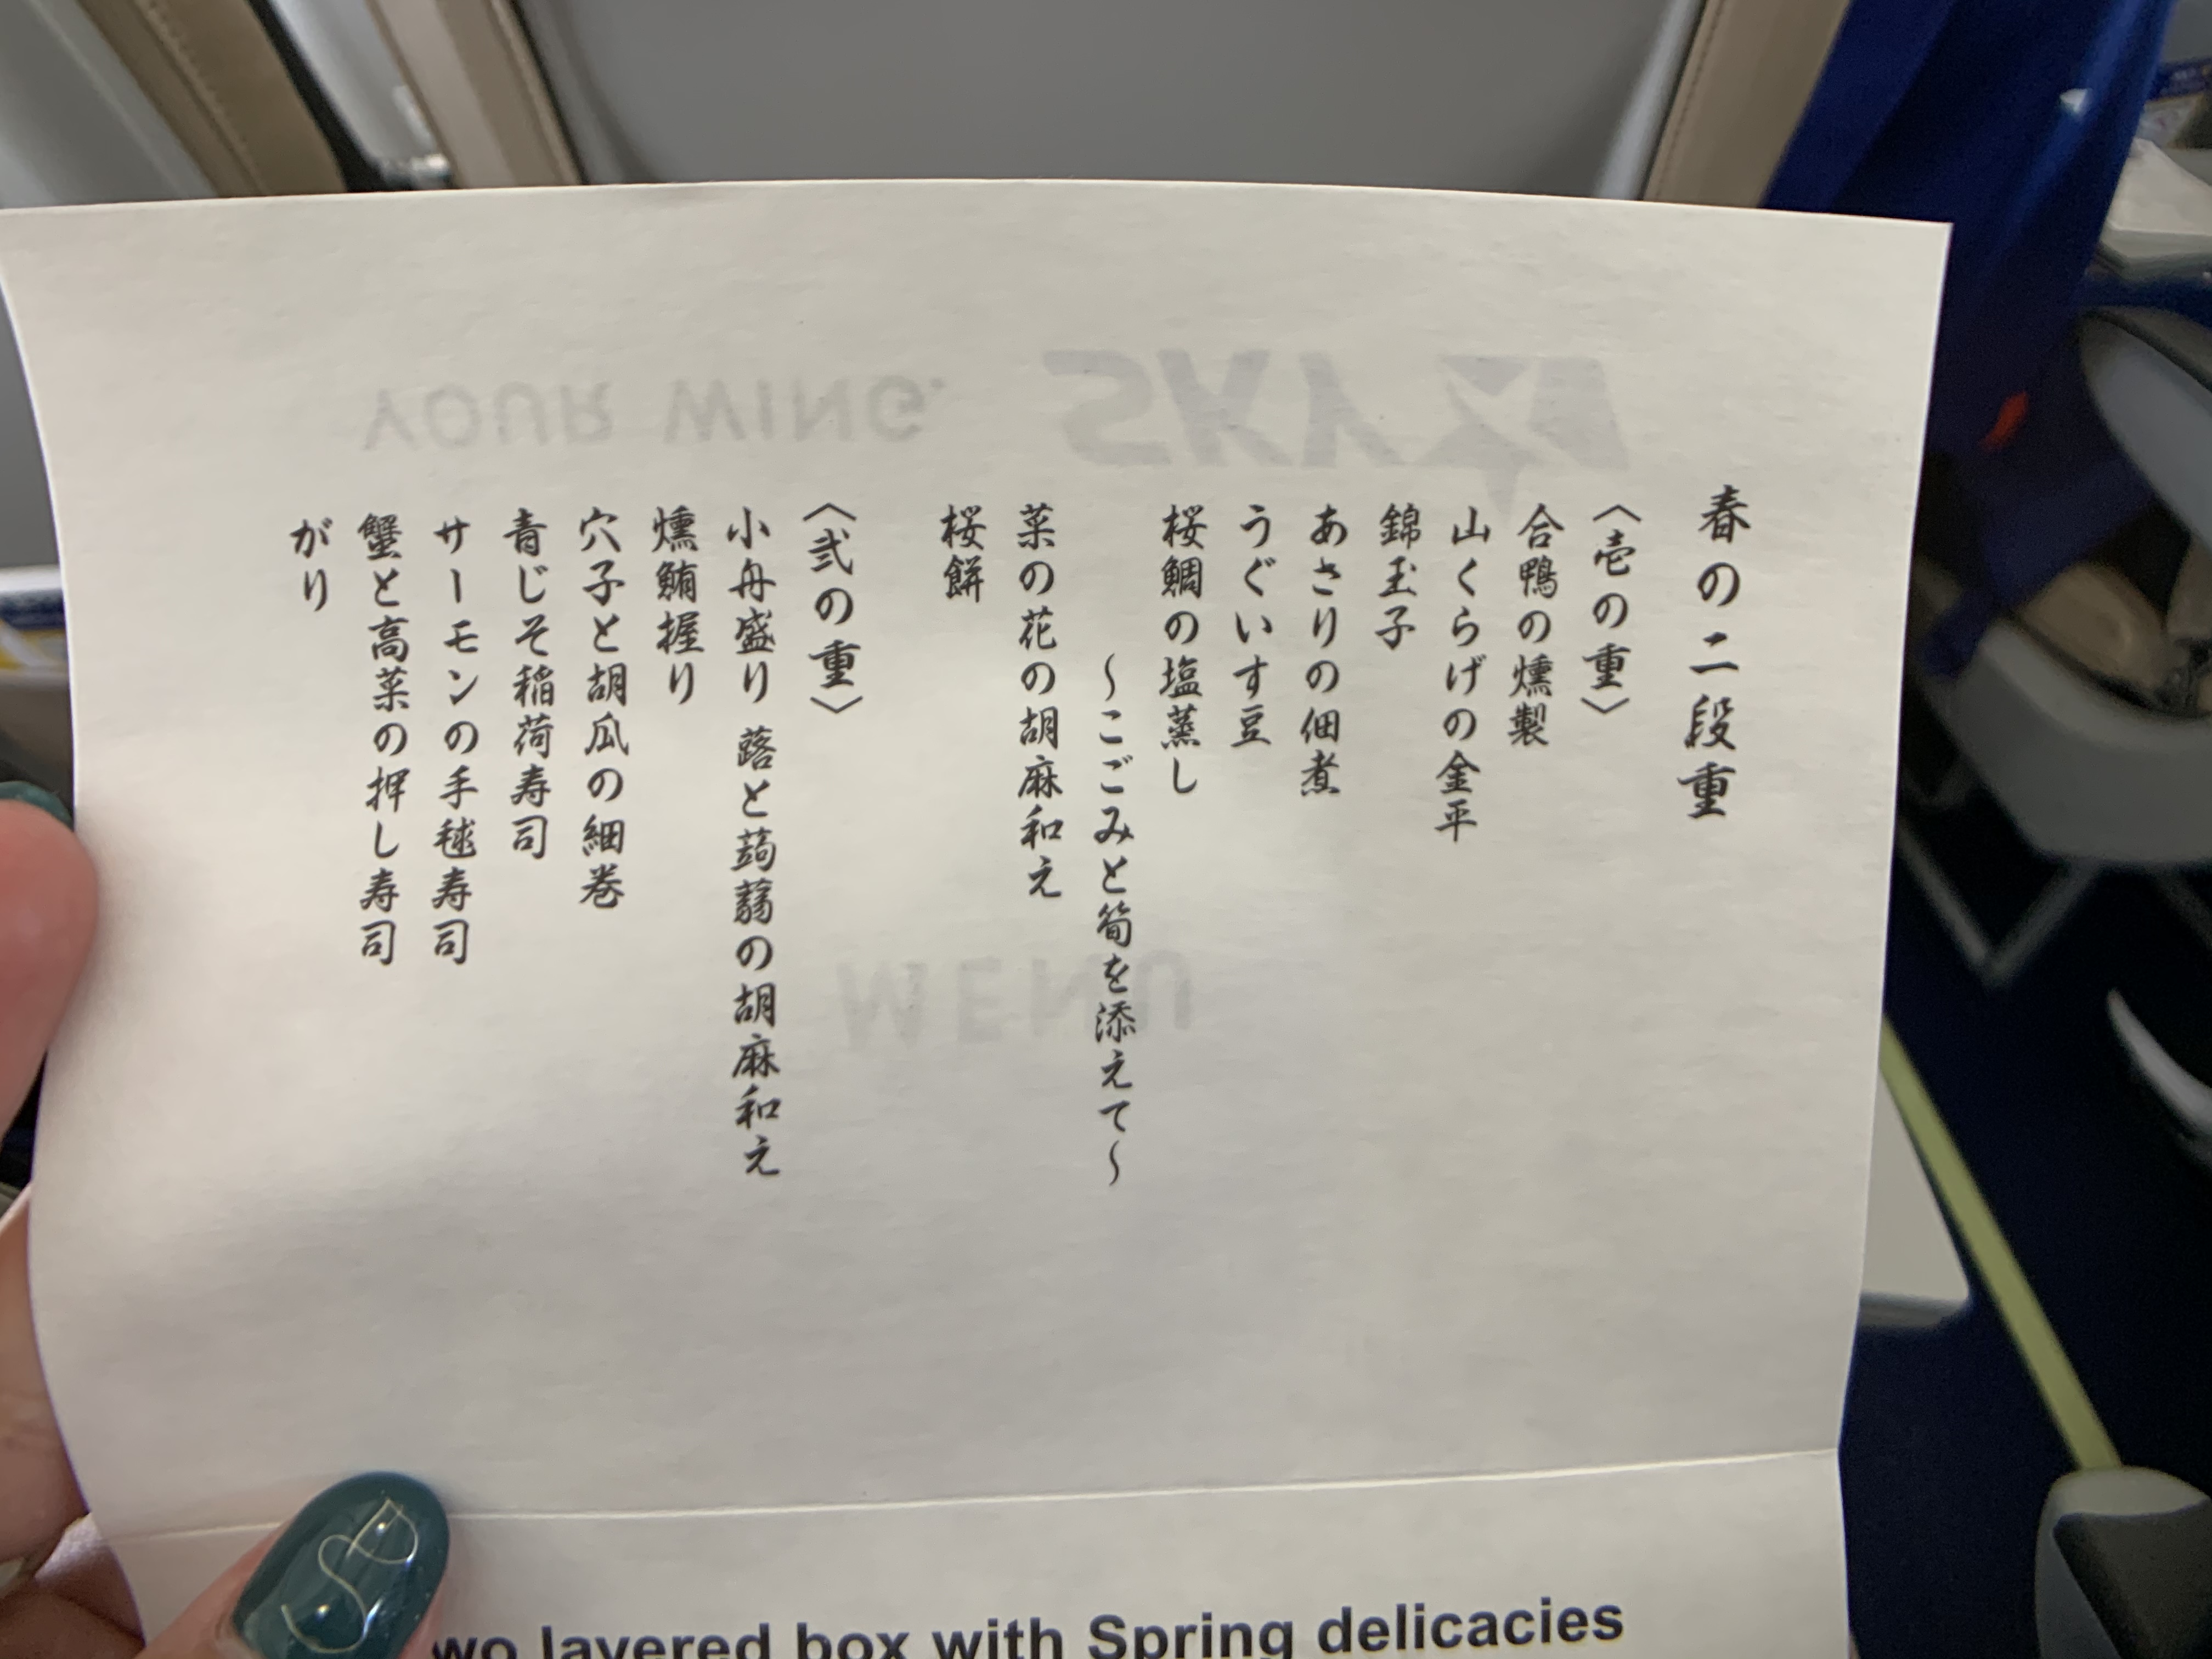 春の二段重
〈壱の重〉
合鴨の燻製
山くらげの金平
錦玉子
あさりの佃煮
うぐいす豆
桜鯛の塩蒸し
～こごみと筍を添えて～
菜の花の胡麻和え
桜餅
〈弐の重〉
小舟盛り 蕗と蒟蒻の胡麻和え
燻鮪握り
穴子と胡瓜の細巻
青じそ稲荷寿司
サーモンの手毬寿司
蟹と高菜の押し寿司
がり
YOUR WING.
SKY
MENU
layered box with Spring delicacies